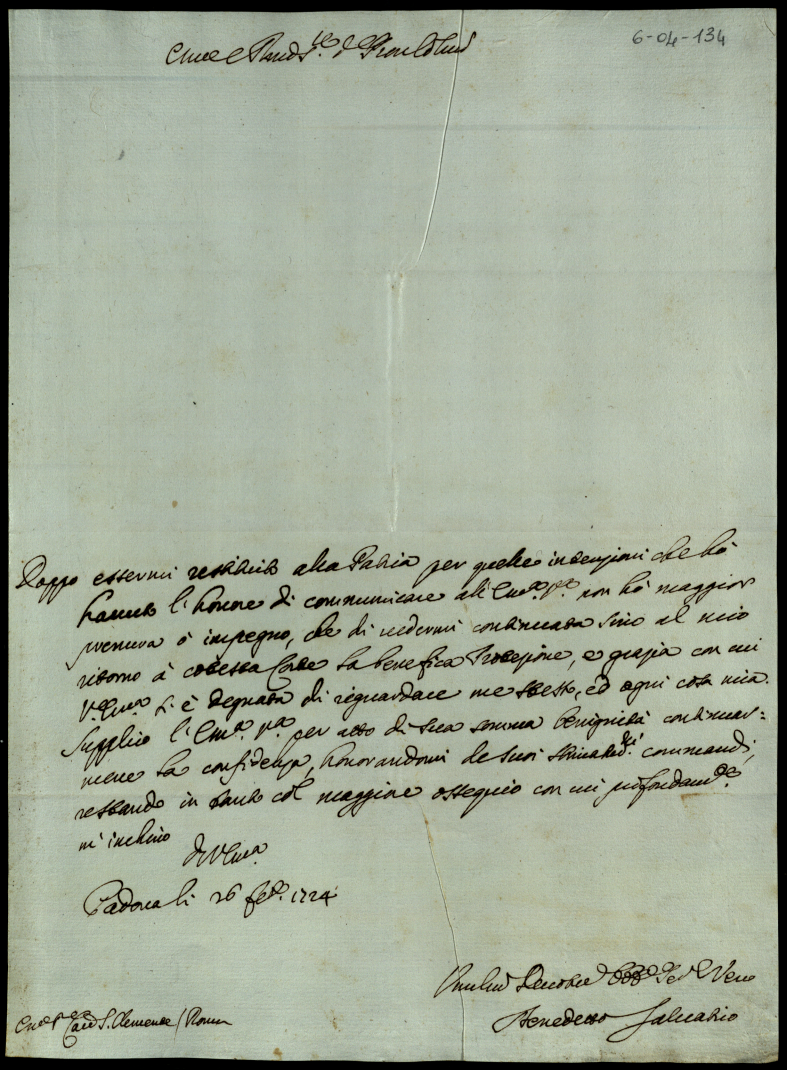 6-04-134
Em.e e Rmo Sig.re
Doppo essermi restituito alla Patria per quelle intenzioni che hò
havuto l'honore di communicare all'Em.a V.a non hò maggior
premura ò impegno, che di vedermi continuata sino al mio
ritorno à codessa Corte la benefica Protezione, e grazia con cui
V.a Em.a si è degnata di riguardare me stesso, ed ogni cosa mia.
Supplico l'Em.a V.a per atto di sua somma benignità continuar=
mene la confidenza, honorandomi de suoi stimatis.mi commandi,
restando in tanto col maggiore ossequio con cui profondam.te
m'inchino
Di V. Em.a
Padova li 26 feb.o 1724
Humil.o Devotis.o Obb.o Ser.e Vero
Benedetto Salvatico
Em.o Sig.r Card S. Clemente / Roma